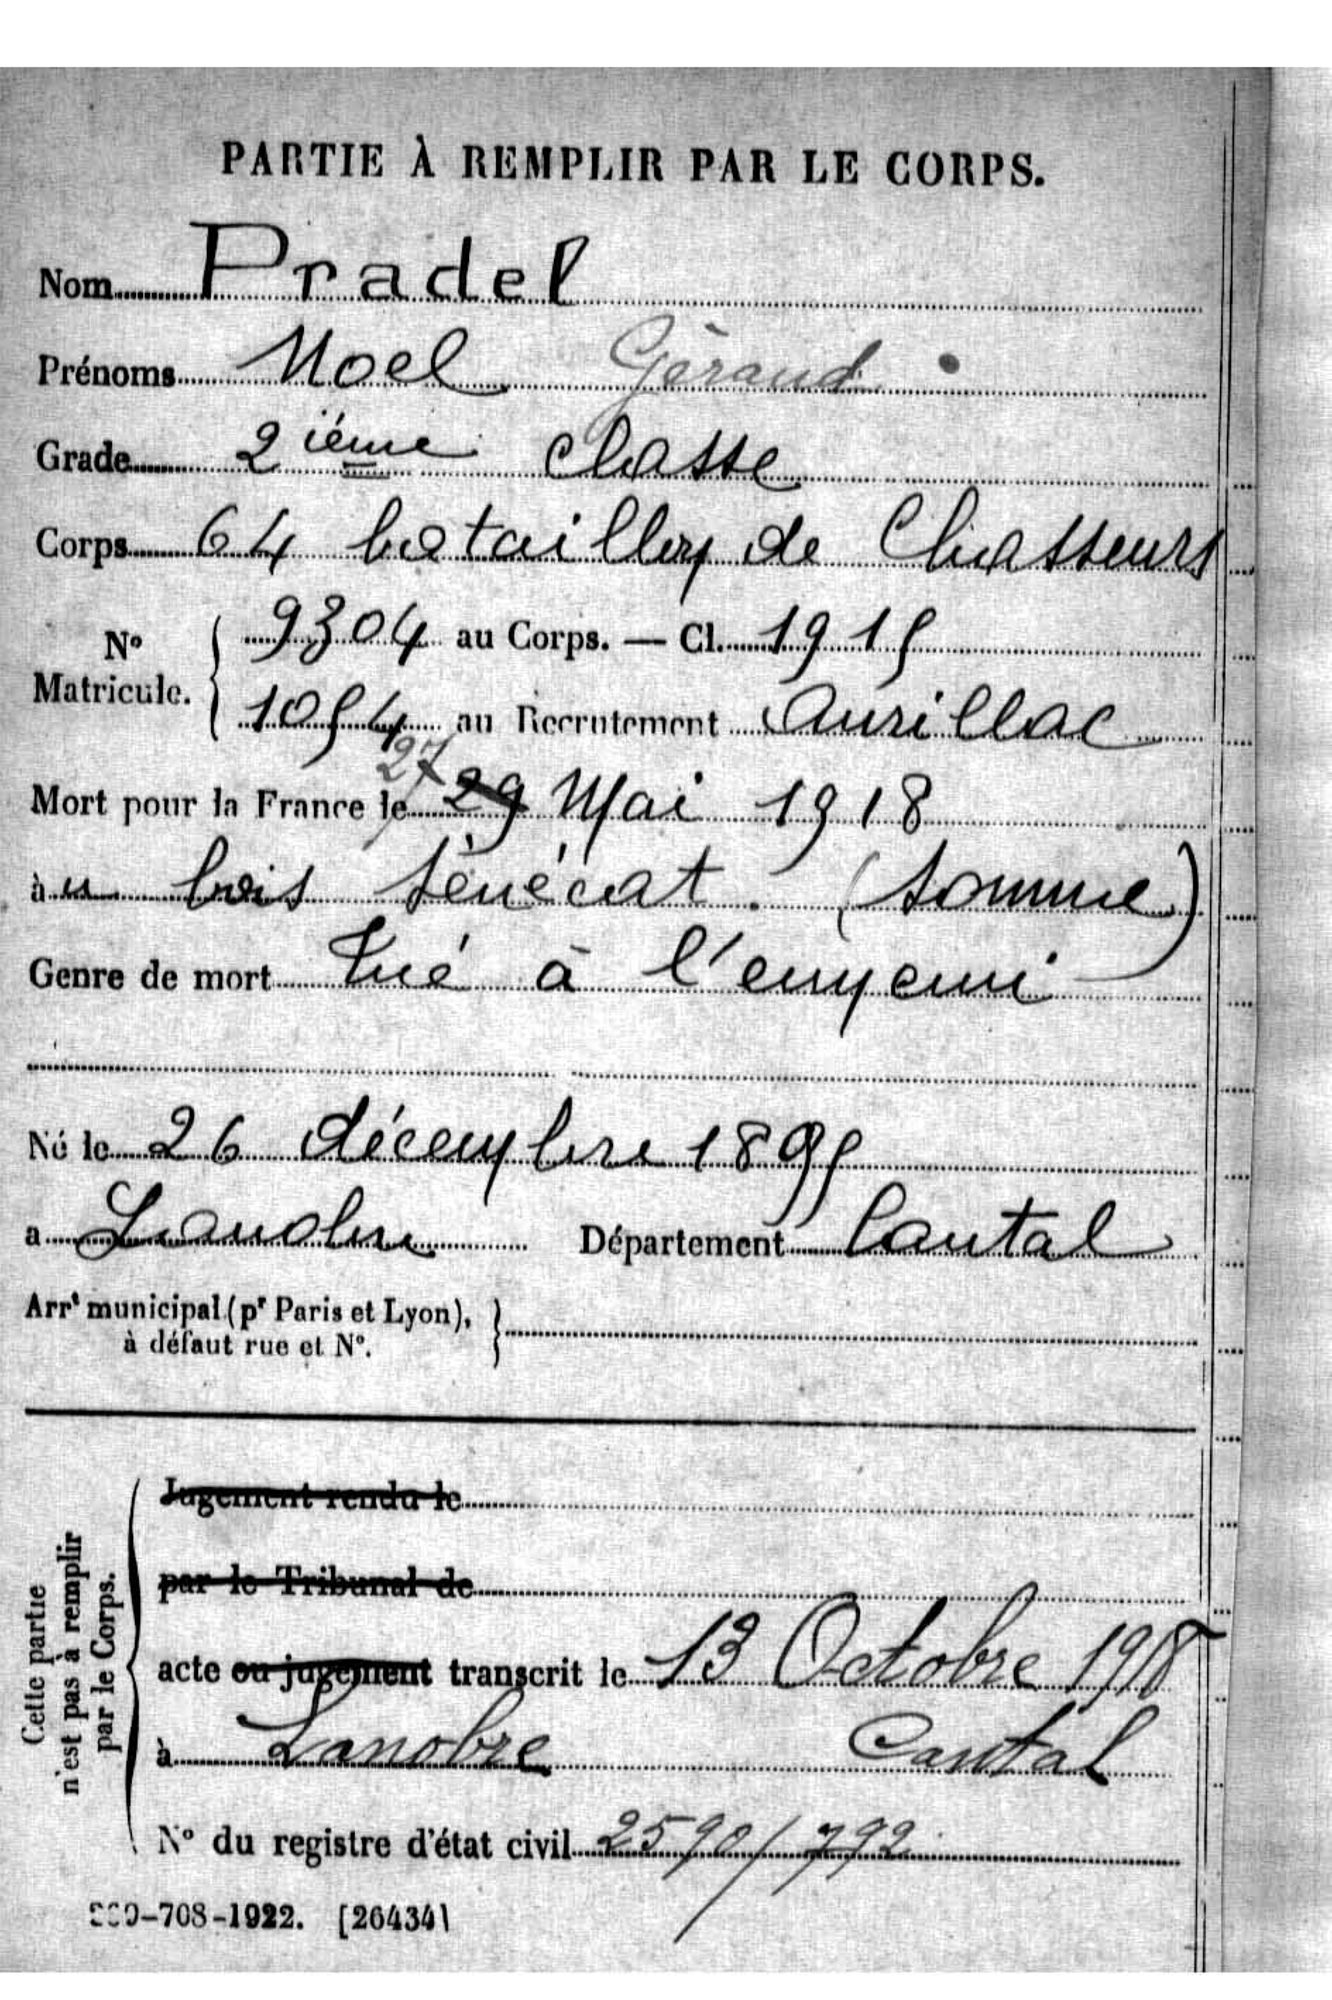 PARTIE À REMPLIR PAR LE CORPS.
Nom Pradel
Prénoms Noel Géraud
Grade 2ième Classe
Corps 64 bataillon de Chasseurs
N° Matricule. { 9304 au Corps. — Cl. 1915
1054 au Recrutement Aurillac
27
Mort pour la France le 29 Mai 1918
à u bois Sénécat. (Somme)
Genre de mort Tué à l'ennemi
Né le 26 décembre 1895
a Département Cantal
Arrt municipal (pr Paris et Lyon),
à défaut rue et N°.
Cette partie n'est pas à remplir par le Corps.
Jugement rendu le
par le Tribunal de
acte ou jugement transcrit le 13 Octobre 1918
à Lanobre Cantal
N° du registre d'état civil 2590/792
-708-1922. [26434]